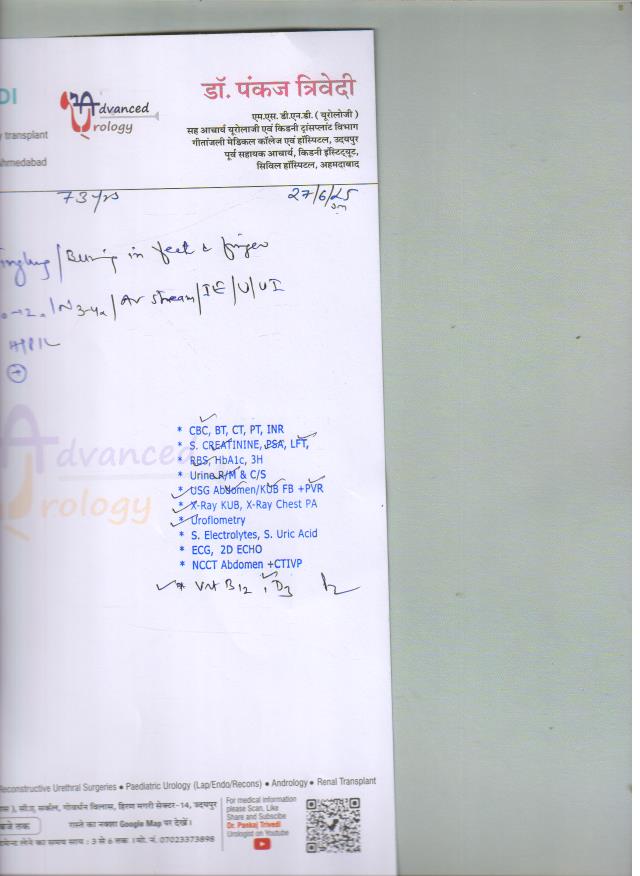 DI
डॉ. पंकज त्रिवेदी
Advanced
Urology
एम.एस. डी.एन.बी. ( यूरोलोजी )
सह आचार्य यूरोलाजी एवं किडनी ट्रांसप्लांट विभाग
y transplant
गीतांजली मेडिकल कॉलेज एवं हॉस्पिटल, उदयपुर
पूर्व सहायक आचार्य, किडनी इंस्टिट्यूट,
Ahmedabad
सिविल हॉस्पिटल, अहमदाबाद
73 yrs
27/6/25
/ Burning in feet & finger
/ N 3-4 / Av stream / IE / U / UI
* CBC, BT, CT, PT, INR
* S. CREATININE, PSA, LFT,
* RBS, HbA1c, 3H
* Urine R/M & C/S
* USG Abdomen/KUB FB +PVR
* X-Ray KUB, X-Ray Chest PA
* Uroflometry
* S. Electrolytes, S. Uric Acid
* ECG, 2D ECHO
* NCCT Abdomen +CTIVP
* Vit B12, D3
Advanced
Urology
Reconstructive Urethral Surgeries ● Paediatric Urology (Lap/Endo/Recons) ● Andrology ● Renal Transplant
सर्कल, गोवर्धन विलास, हिरण मगरी सेक्टर-14, उदयपुर
बजे तक
रास्ते का नक्शा Google Map पर देखें।
लेने का समय साय : 3 से 6 तक । मो. नं. 07023373898
For medical information
please Scan, Like
Share and Subscibe
Dr. Pankaj Trivedi
Urologist on Youtube